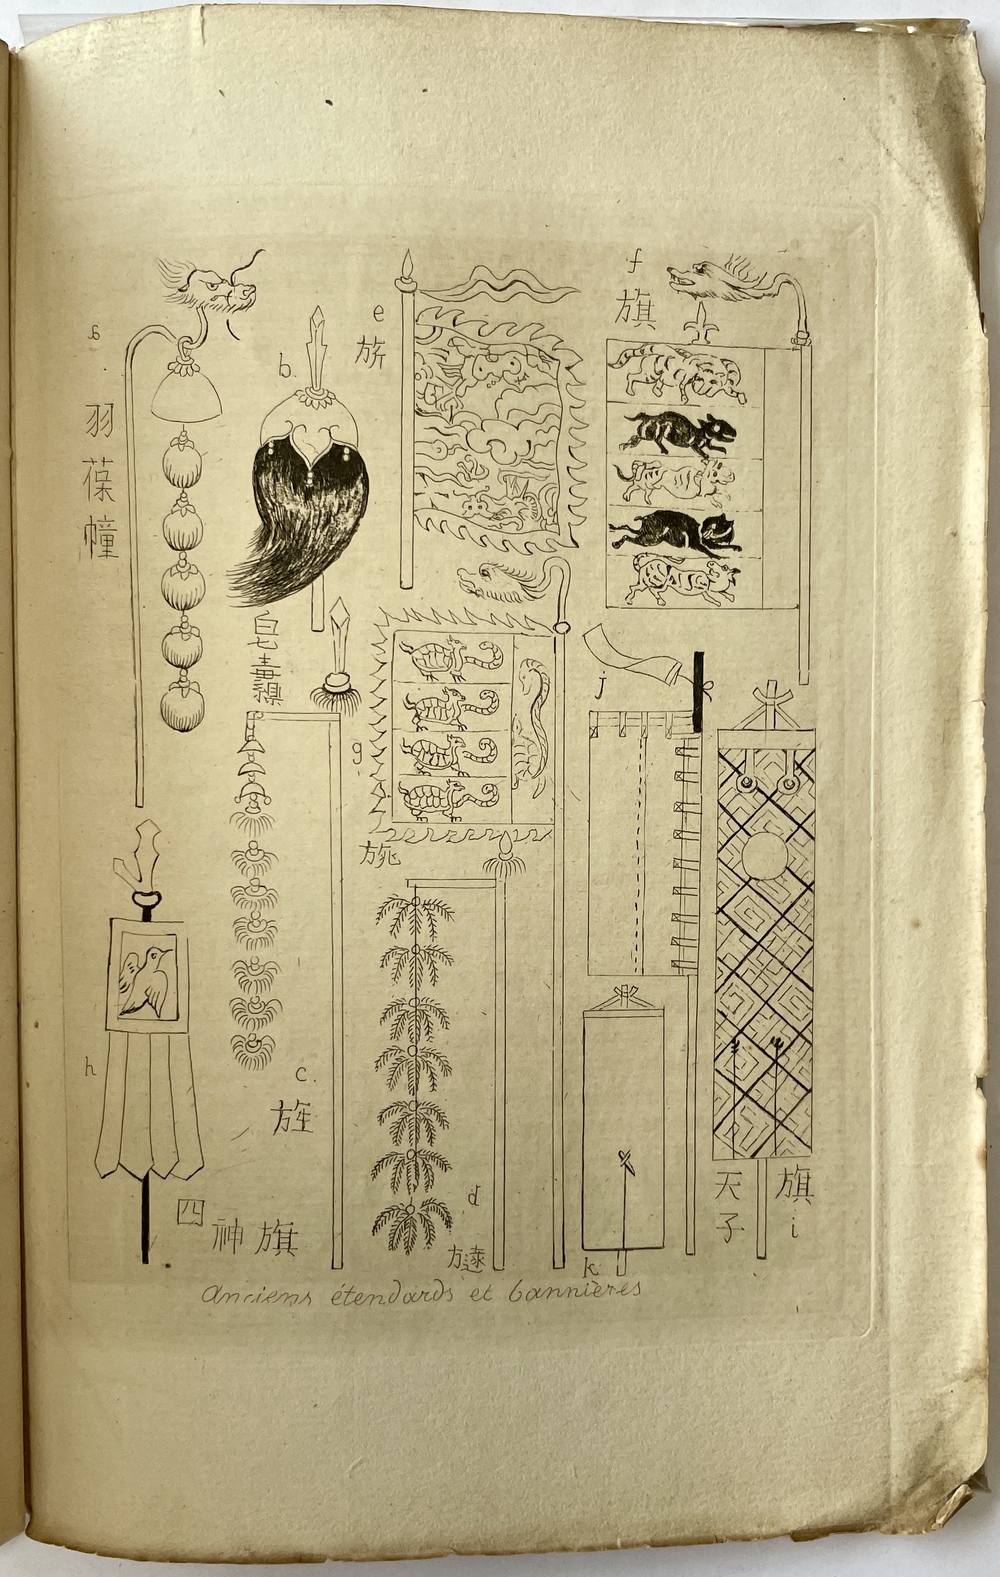 a
羽
葆
幢
b.
皂
纛
c.
旌
d
旞
e
旂
f
旗
g
旐
h
四神旗
天子
旗
i
j
k
Anciens étendards et bannières